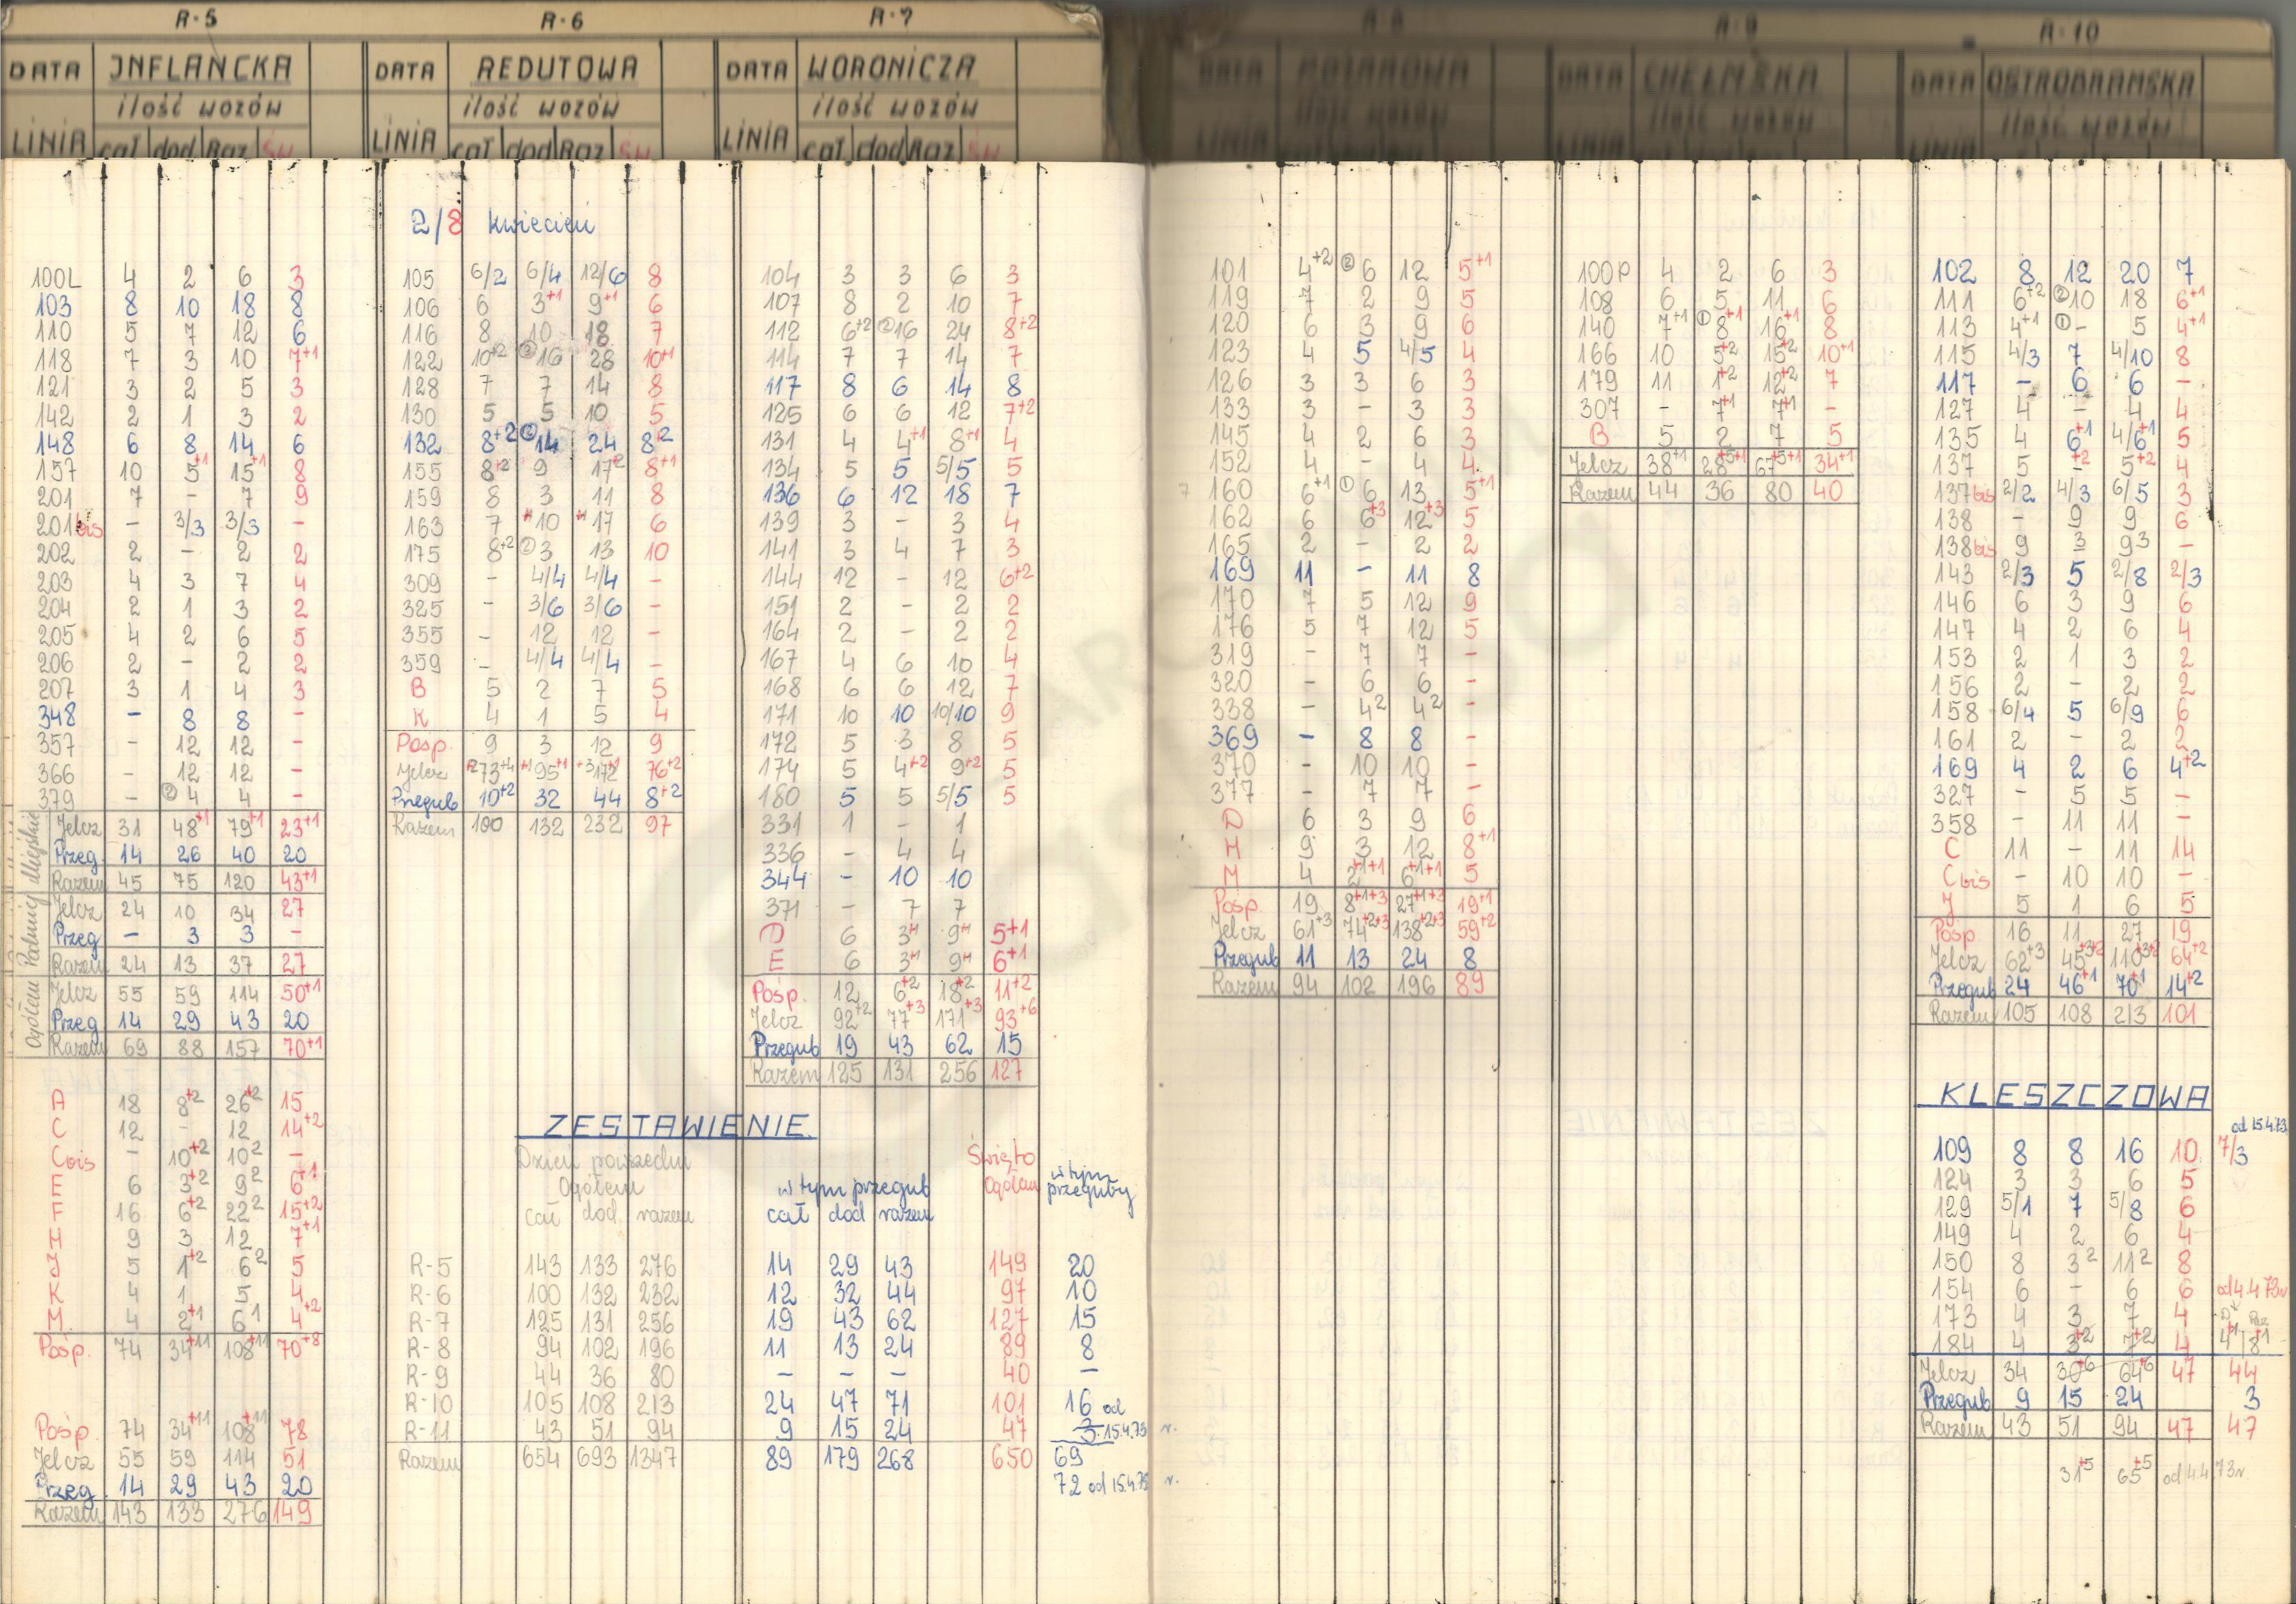 R-5
DATA INFLANCKA
ilość wozów
LINIA cał dod Raz św
100L 4 2 6 3
103 8 10 18 8
110 5 7 12 6
118 7 3 10 7+1
121 3 2 5 3
142 2 1 3 2
148 6 8 14 6
157 10 5+1 15+1 8
201 7 - 7 9
201bis - 3/3 3/3 -
202 2 - 2 2
203 4 3 7 4
204 2 1 3 2
205 4 2 6 5
206 2 - 2 2
207 3 1 4 3
348 - 8 8 -
357 - 12 12 -
366 - 12 12 -
379 - ② 4 4 -
Ogółem Podmiej Miejskie
Jelcz 31 48+1 79+1 23+1
Przeg 14 26 40 20
Razem 45 75 120 43+1
Jelcz 24 10 34 27
Przeg - 3 3 -
Razem 24 13 37 27
Jelcz 55 59 114 50+1
Przeg 14 29 43 20
Razem 69 88 157 70+1
A 18 8+2 26+2 15
C 12 - 12 14+2
Cbis - 10+2 10 2 -
E 6 3+2 9 2 6+1
F 16 6+2 22 2 15+2
H 9 3 12 7+1
J 5 1+2 6 2 5
K 4 1 5 4
M 4 2+1 6 1 4+2
Pośp. 74 34+11 108+11 70+8
Pośp. 74 34+11 108+11 78
Jelcz 55 59 114 51
Przeg. 14 29 43 20
Razem 143 133 276 149
R-6
DATA REDUTOWA
ilość wozów
LINIA cał dod Raz św
2/8 kwiecień
105 6/2 6/4 12/6 8
106 6 3+1 9+1 6
116 8 10 18 7
122 10+2 ② 16 28 10+1
128 7 7 14 8
130 5 5 10 5
132 8+2 ② 14 24 8+2
155 8+2 9 17+2 8+1
159 8 3 11 8
163 7 +1 10 +1 17 6
175 8+2 ② 3 13 10
309 - 4/4 4/4 -
325 - 3/6 3/6 -
355 - 12 12 -
359 - 4/4 4/4 -
B 5 2 7 5
K 4 1 5 4
Pośp. 9 3 12 9
Jelcz +2 73+4 +1 95+1 +3 172+1 76+2
Przegub 10+2 32 44 8+2
Razem 100 132 232 97
R-7
DATA WORONICZA
ilość wozów
LINIA cał dod Raz św
104 3 3 6 3
107 8 2 10 7
112 6+2 ② 16 24 8+2
114 7 7 14 7
117 8 6 14 8
125 6 6 12 7+2
131 4 4+1 8+1 4
134 5 5 5/5 5
136 6 12 18 7
139 3 - 3 4
141 3 4 7 3
144 12 - 12 6+2
151 2 - 2 2
164 2 - 2 2
167 4 6 10 4
168 6 6 12 7
171 10 10 10/10 9
172 5 3 8 5
174 5 4+2 9+2 5
180 5 5 5/5 5
331 1 - 1
336 - 4 4
344 - 10 10
371 - 7 7
D 6 3+1 9+1 5+1
E 6 3+1 9+1 6+1
Pośp. 12 6+2 18+2 11+2
Jelcz 92+2 77+3 171+3 93+6
Przegub 19 43 62 15
Razem 125 131 256 127
ZESTAWIENIE
Dzień powszedni Święto w tym
Ogółem w tym przegub Ogółem przeguby
cał dod. razem cał dod razem
R-5 143 133 276 14 29 43 149 20
R-6 100 132 232 12 32 44 97 10
R-7 125 131 256 19 43 62 127 15
R-8 94 102 196 11 13 24 89 8
R-9 44 36 80 - - - 40 -
R-10 105 108 213 24 47 71 101 16 od
R-11 43 51 94 9 15 24 47 3 15.4.73 r.
Razem 654 693 1347 89 179 268 650 69
72 od 15.4.73 r.
R-8
DATA
ilość wozów
LINIA
101 4+2 ② 6 12 5+1
119 7 2 9 5
120 6 3 9 6
123 4 5 4/5 4
126 3 3 6 3
133 3 - 3 3
145 4 2 6 3
152 4 - 4 4
7 160 6+1 ① 6 13 5+1
162 6 6+3 12+3 5
165 2 - 2 2
169 11 - 11 8
170 7 5 12 9
176 5 7 12 5
319 - 7 7 -
320 - 6 6 -
338 - 4 2 4 2 -
369 - 8 8 -
370 - 10 10 -
377 - 7 7 -
D 6 3 9 6
H 9 3 12 8+1
M 4 2+1+1 6+1+1 5
Pośp. 19 8+1+3 27+1+3 19+1
Jelcz 61+3 74+2+3 138+2+3 59+2
Przegub 11 13 24 8
Razem 94 102 196 89
R-9
DATA CHEŁMSKA
ilość wozów
LINIA
100P 4 2 6 3
108 6 5 11 6
140 7+1 ① 8+1 16+1 8
166 10 5+2 15+2 10+1
179 11 1+2 12+2 7
307 - 7+1 7+1 -
B 5 2 7 5
Jelcz 38+1 28+5+1 67+5+1 34+1
Razem 44 36 80 40
R-10
DATA OSTROBRAMSKA
ilość wozów
LINIA
102 8 12 20 7
111 6+2 ② 10 18 6+1
113 4+1 ① - 5 4+1
115 4/3 7 4/10 8
117 - 6 6 -
127 4 - 4 4
135 4 6+1 4/6+1 5
137 5 -+2 5+2 4
137bis 2/2 4/3 6/5 3
138 - 9 9 6
138bis 9 3 9 3 -
143 2/3 5 2/8 2/3
146 6 3 9 6
147 4 2 6 4
153 2 1 3 2
156 2 - 2 2
158 6/4 5 6/9 6
161 2 - 2 2
169 4 2 6 4+2
327 - 5 5 -
358 - 11 11 -
C 11 - 11 14
Cbis - 10 10 -
J 5 1 6 5
Pośp 16 11 27 19
Jelcz 62+3 45+3+2 110+3+2 64+2
Przegub 24 46+1 70+1 14+2
Razem 105 108 213 101
KLESZCZOWA
od 15.4.73
109 8 8 16 10 7/3
124 3 3 6 5
129 5/1 7 5/8 6
149 4 2 6 4
150 8 3 2 11 2 8
154 6 - 6 6 od 4.4.73r
173 4 3 7 4 D Raz
184 4 3+2 7+2 4 4+1 8+1
Jelcz 34 30+6 64+6 47 44
Przegub 9 15 24 3
Razem 43 51 94 47 47
31+5 65+5 od 4.4.73r